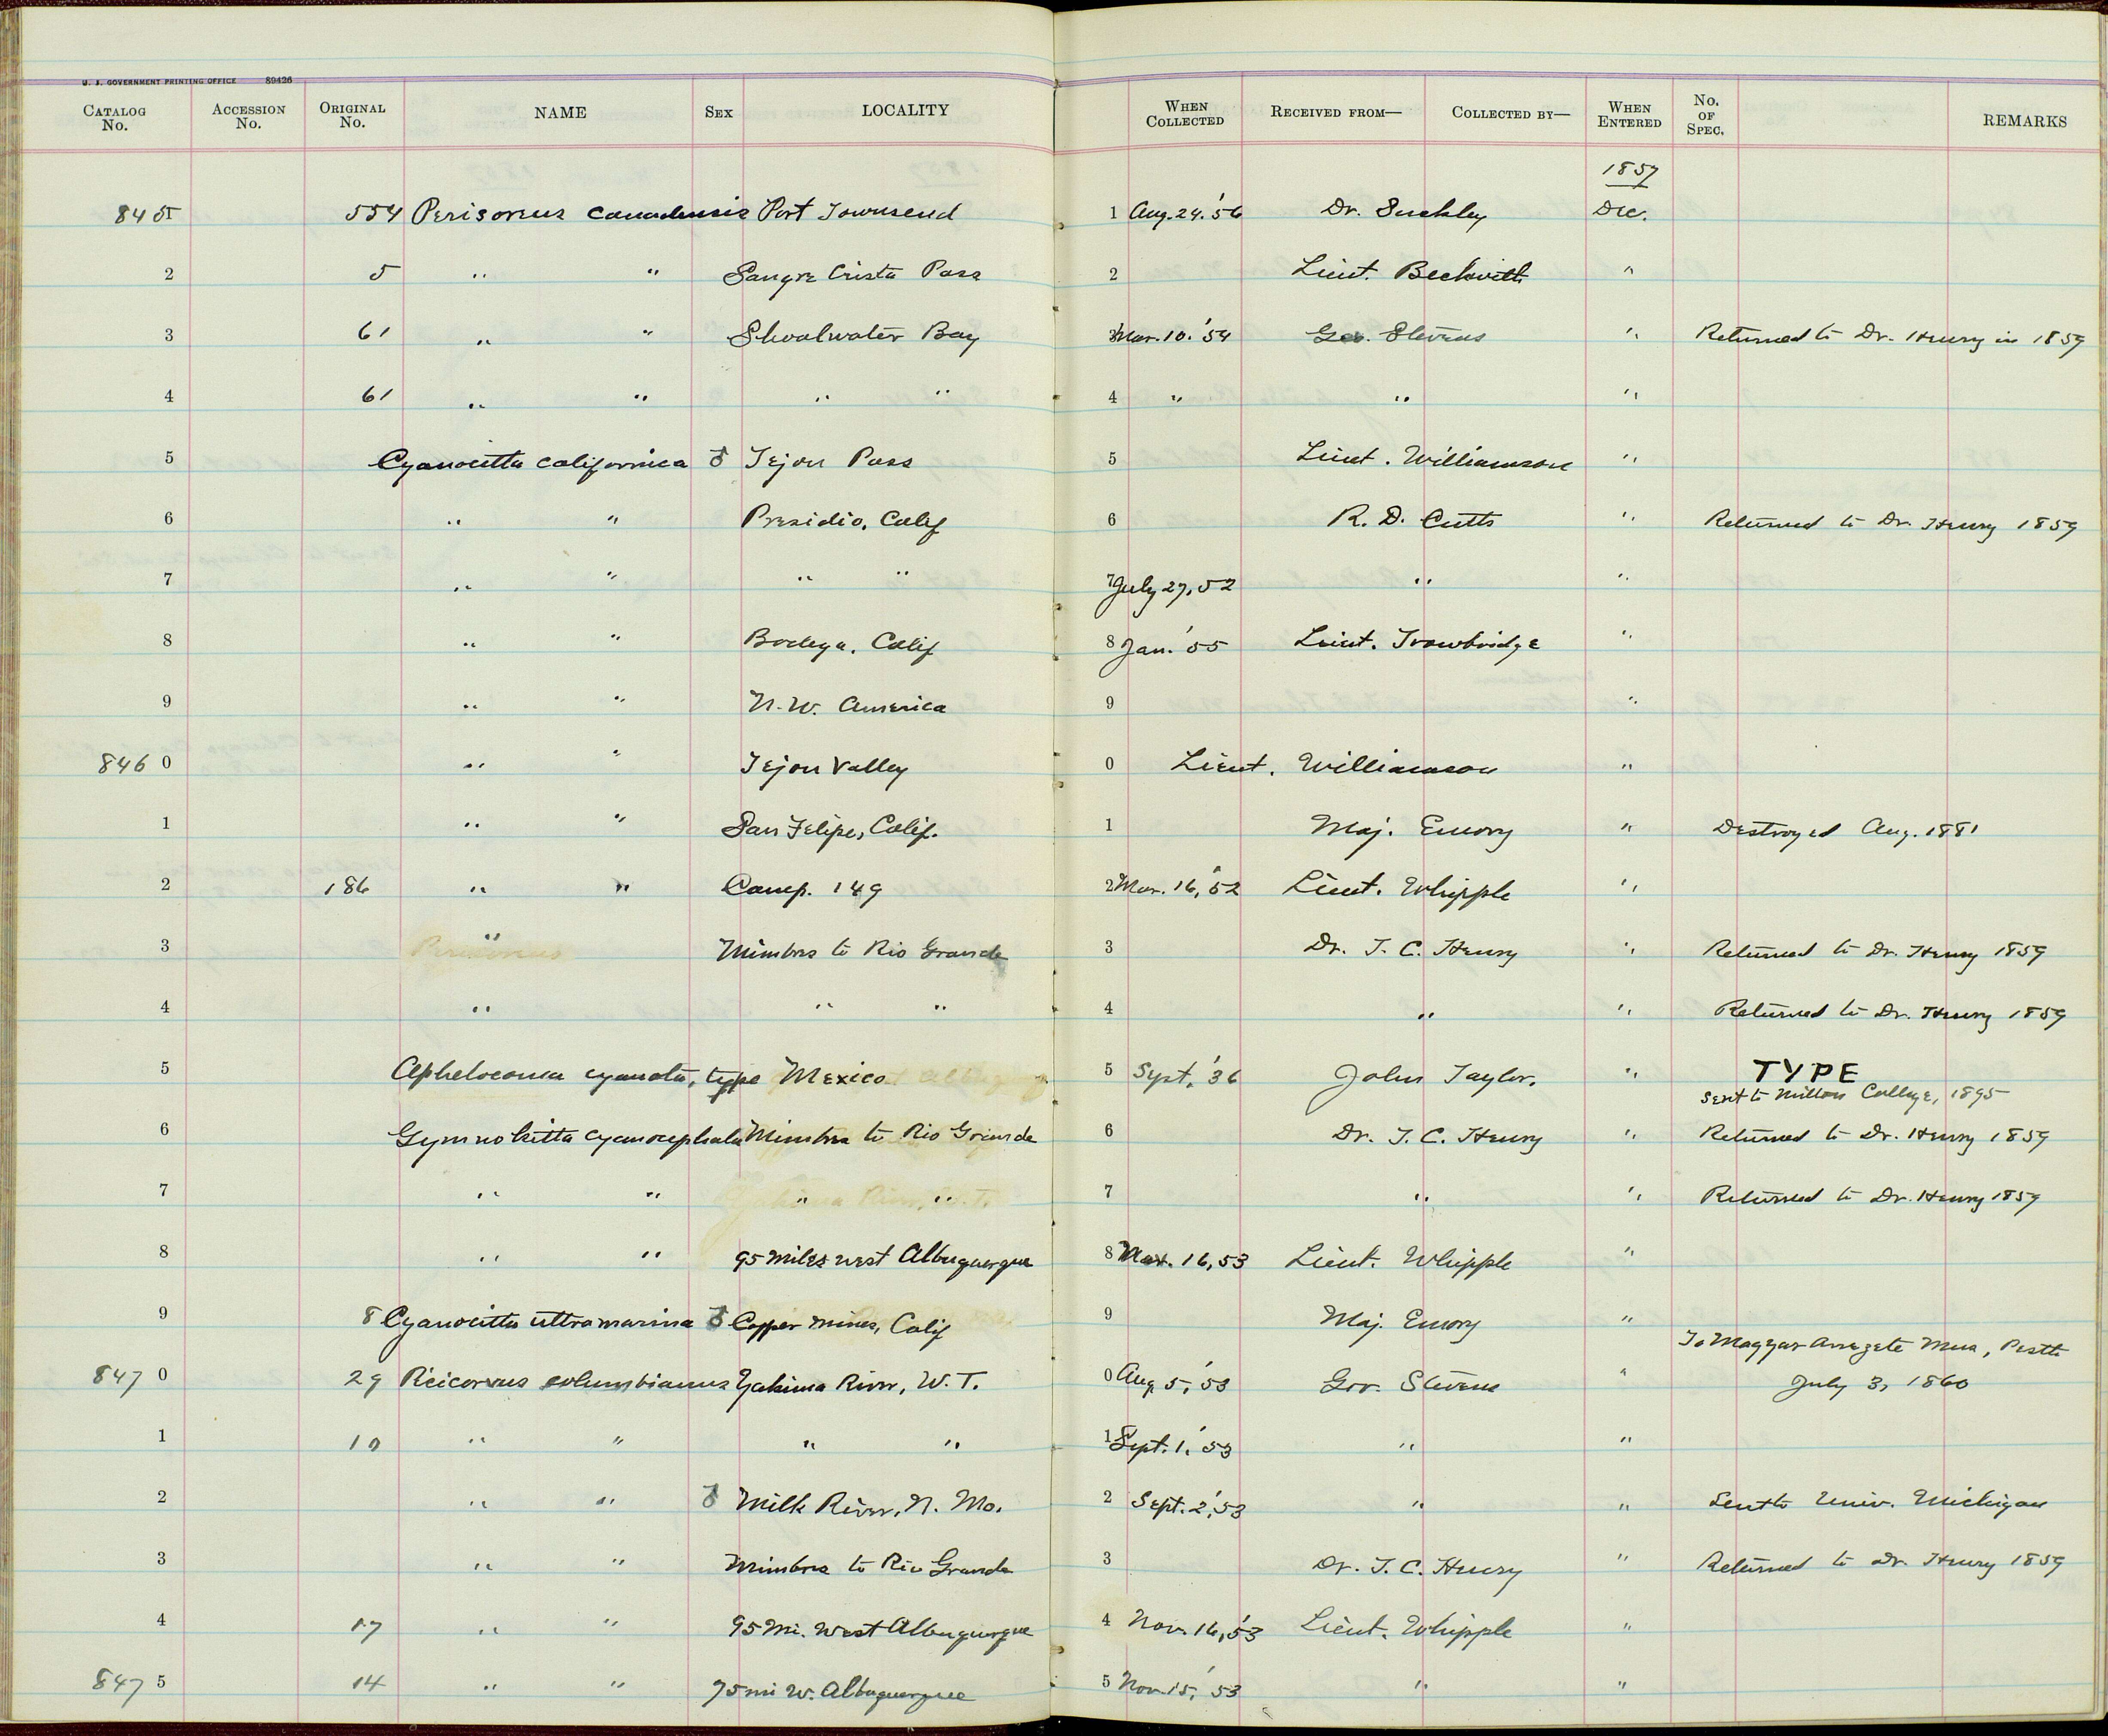 U. S. GOVERNMENT PRINTING OFFICE 89426
CATALOG No. ACCESSION No. ORIGINAL No. NAME SEX LOCALITY WHEN COLLECTED RECEIVED FROM— COLLECTED BY— WHEN ENTERED No. OF SPEC. REMARKS
1857
8451 554 Perisoreus canadensis Port Townsend 1 Aug. 24. '56 Dr. Suckley Dec.
2 5 " " Sangre Crista Pass 2 Lieut. Beckwith "
3 61 " " Shoalwater Bay 3 Mar. 10. '54 Gov. Stevens " Returned to Dr. Henry in 1859
4 61 " " " " 4 " " "
5 Cyanocitta californica ♂ Tejon Pass 5 Lieut. Williamson "
6 " " Presidio, Calif 6 R. D. Cutts " Returned to Dr. Henry 1859
7 " " " " 7 July 27, 52 " "
8 " " Bodega, Calif 8 Jan. '55 Lieut. Trowbridge "
9 " " N. W. America 9 "
8460 " " Tejon Valley 0 Lieut. Williamson "
1 " " San Felipe, Calif. 1 Maj. Emory " Destroyed Aug. 1881
2 186 " " Camp. 149 2 Mar. 16, '52 Lieut. Whipple "
3 " Mimbres to Rio Grande 3 Dr. T. C. Henry " Returned to Dr. Henry 1859
4 " " " 4 " " Returned to Dr. Henry 1859
5 Aphelocoma cyanotis, type Mexico 5 Sept. '36 John Taylor. " TYPE
Sent to Milton College, 1895
6 Gymnokitta cyanocephala Mimbres to Rio Grande 6 Dr. T. C. Henry " Returned to Dr. Henry 1859
7 " " " " 7 " " Returned to Dr. Henry 1859
8 " " 95 miles west Albuquerque 8 Nov. 16, 53 Lieut. Whipple "
9 8 Cyanocitta ultramarina ♂ Copper Mines, Calif 9 Maj. Emory "
To Magyar Mus, Pesth
8470 29 Picicorvus columbianus Yakima River, W. T. 0 Aug 5, '53 Gov. Stevens " July 3, 1860
1 10 " " " " 1 Sept. 1. '53 " "
2 " " ♂ Milk River, N. Mo. 2 Sept. 2, '53 " " Sent to Univ. Michigan
3 " " Mimbres to Rio Grande 3 Dr. T. C. Henry " Returned to Dr. Henry 1859
4 17 " " 95 Mi. West Albuquerque 4 Nov. 16, '53 Lieut. Whipple "
8475 14 " " 75 mi W. Albuquerque 5 Nov. 15, '53 " "